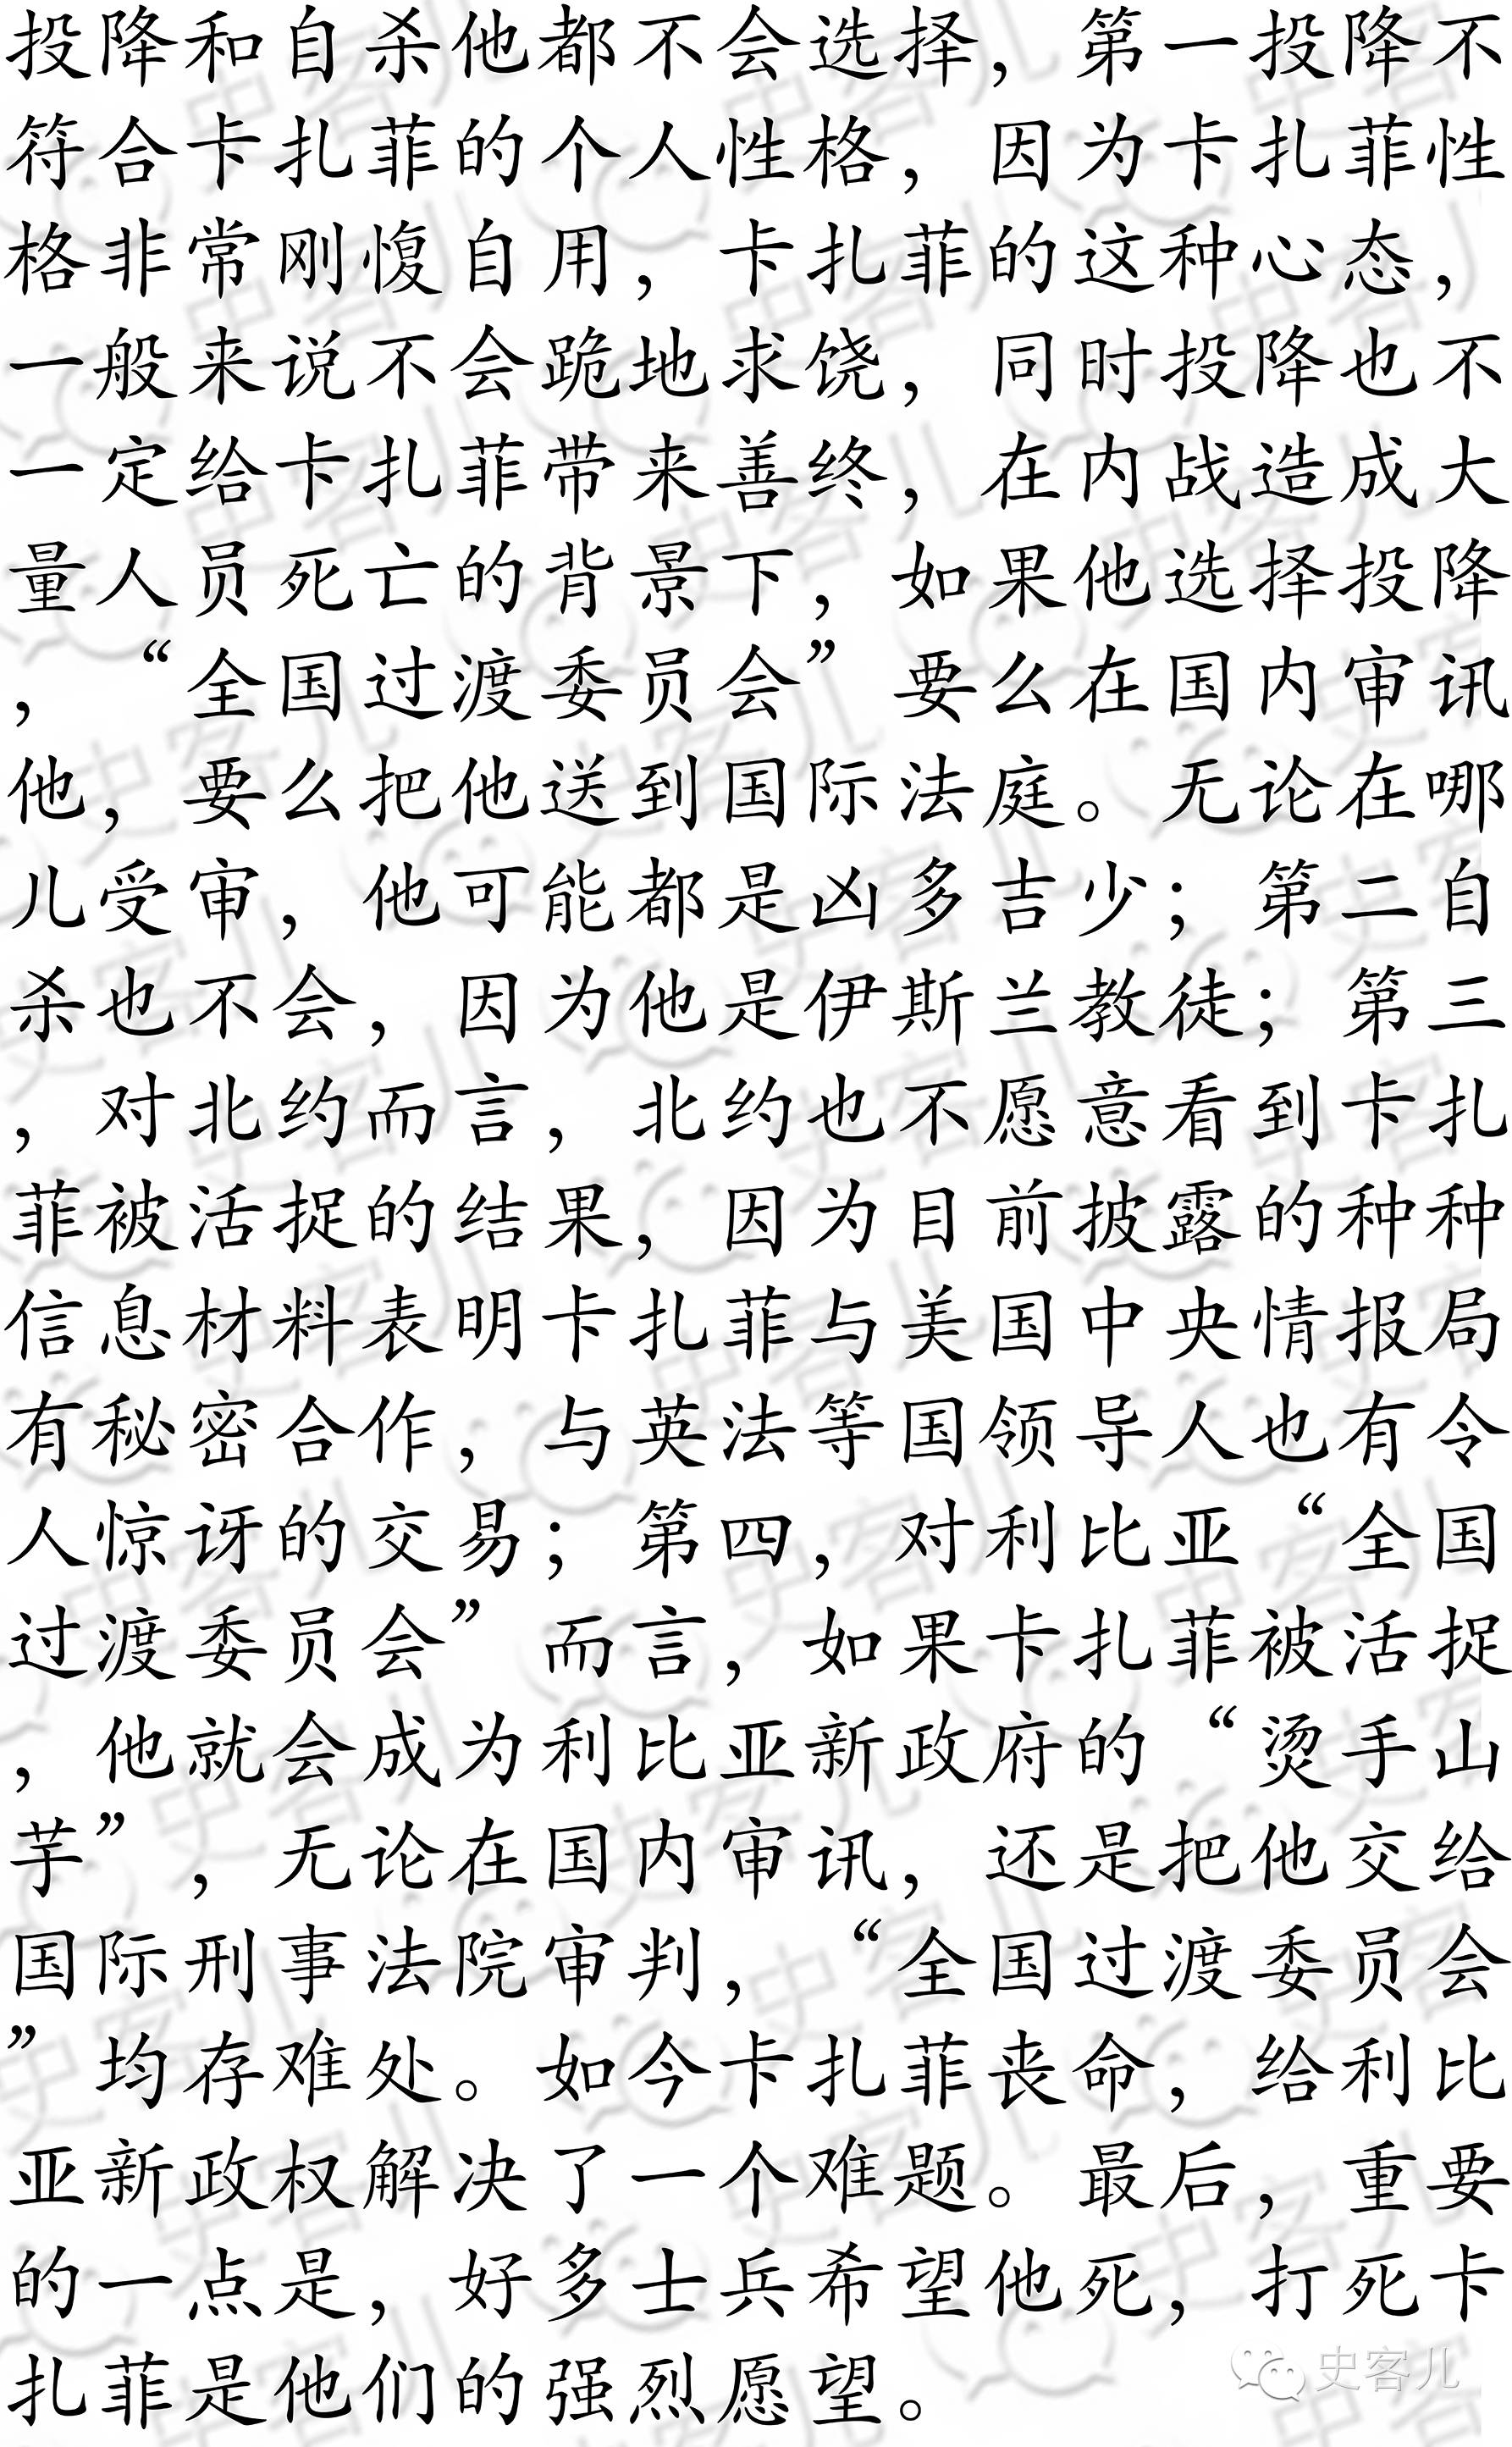 投降和自杀他都不会选择，第一投降不
符合卡扎菲的个人性格，因为卡扎菲性
格非常刚愎自用，卡扎菲的这种心态，
一般来说不会跪地求饶，同时投降也不
一定给卡扎菲带来善终，在内战造成大
量人员死亡的背景下，如果他选择投降
，“全国过渡委员会”要么在国内审讯
他，要么把他送到国际法庭。无论在哪
儿受审，他可能都是凶多吉少；第二自
杀也不会，因为他是伊斯兰教徒；第三
，对北约而言，北约也不愿意看到卡扎
菲被活捉的结果，因为目前披露的种种
信息材料表明卡扎菲与美国中央情报局
有秘密合作，与英法等国领导人也有令
人惊讶的交易；第四，对利比亚“全国
过渡委员会”而言，如果卡扎菲被活捉
，他就会成为利比亚新政府的“烫手山
芋”，无论在国内审讯，还是把他交给
国际刑事法院审判，“全国过渡委员会
”均存难处。如今卡扎菲丧命，给利比
亚新政权解决了一个难题。最后，重要
的一点是，好多士兵希望他死，打死卡
扎菲是他们的强烈愿望。
史客儿